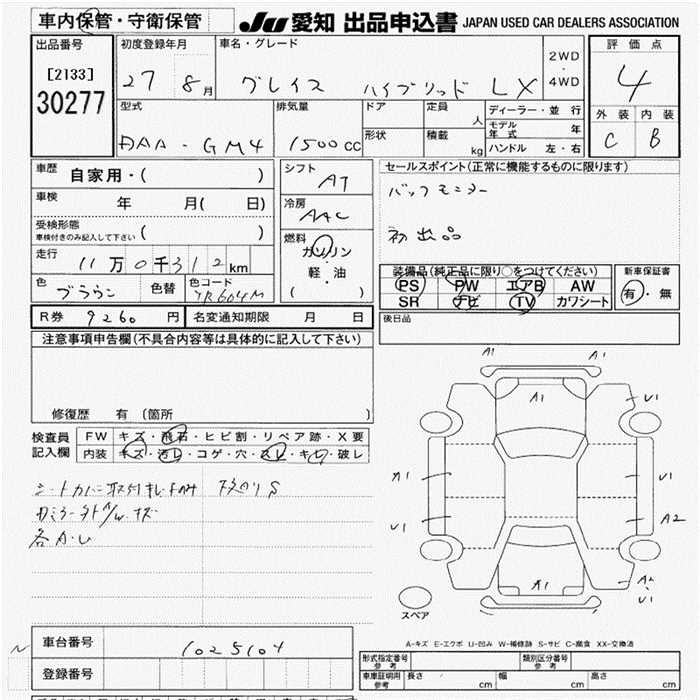 車内保管・守衛保管
JU 愛知 出品申込書 JAPAN USED CAR DEALERS ASSOCIATION
出品番号
[2133]
30277
初度登録年月
27 8月
車名・グレード
グレイス ハイブリッド LX
2WD
・
4WD
評価点
4
外装 内装
C B
型式
DAA-GM4
排気量
1500cc
ドア
定員
人
形状
積載
kg
ディーラー・並行
モデル年式 年
ハンドル 左・右
車歴
自家用・( )
車検
年 月( 日)
受検形態
車検付きのみ記入して下さい ( )
走行
11万0千312km
色
ブラウン
色替
色コード
YR604M
シフト
AT
冷房
AAC
燃料
ガソリン
・
軽・油
( )
セールスポイント(正常に機能するものに限ります)
バックモニター
初出品
装備品(純正品に限り○をつけてください)
PS PW エアB AW
SR ナビ TV カワシート
新車保証書
有・無
後日品
R券 9260円
名変通知期限 月 日
注意事項申告欄(不具合内容等は具体的に記入して下さい)
修復歴 有 (箇所 )
検査員記入欄
FW キズ・飛石・ヒビ割・リペア跡・X要
内装 キズ・汚レ・コゲ・穴・スレ・キレ・破レ
シートカバー
各A.U
A1 A1
A1
U1
A1
U1
U1
A2
A1
A2
U1
スペア
A-キズ E-エクボ U-凹み W-補修跡 S-サビ C-腐食 XX-交換済
車台番号
1025104
登録番号
形式指定番号
参考
類別区分番号
参考
車庫証明用
参考
長さ cm
幅 cm
高さ cm